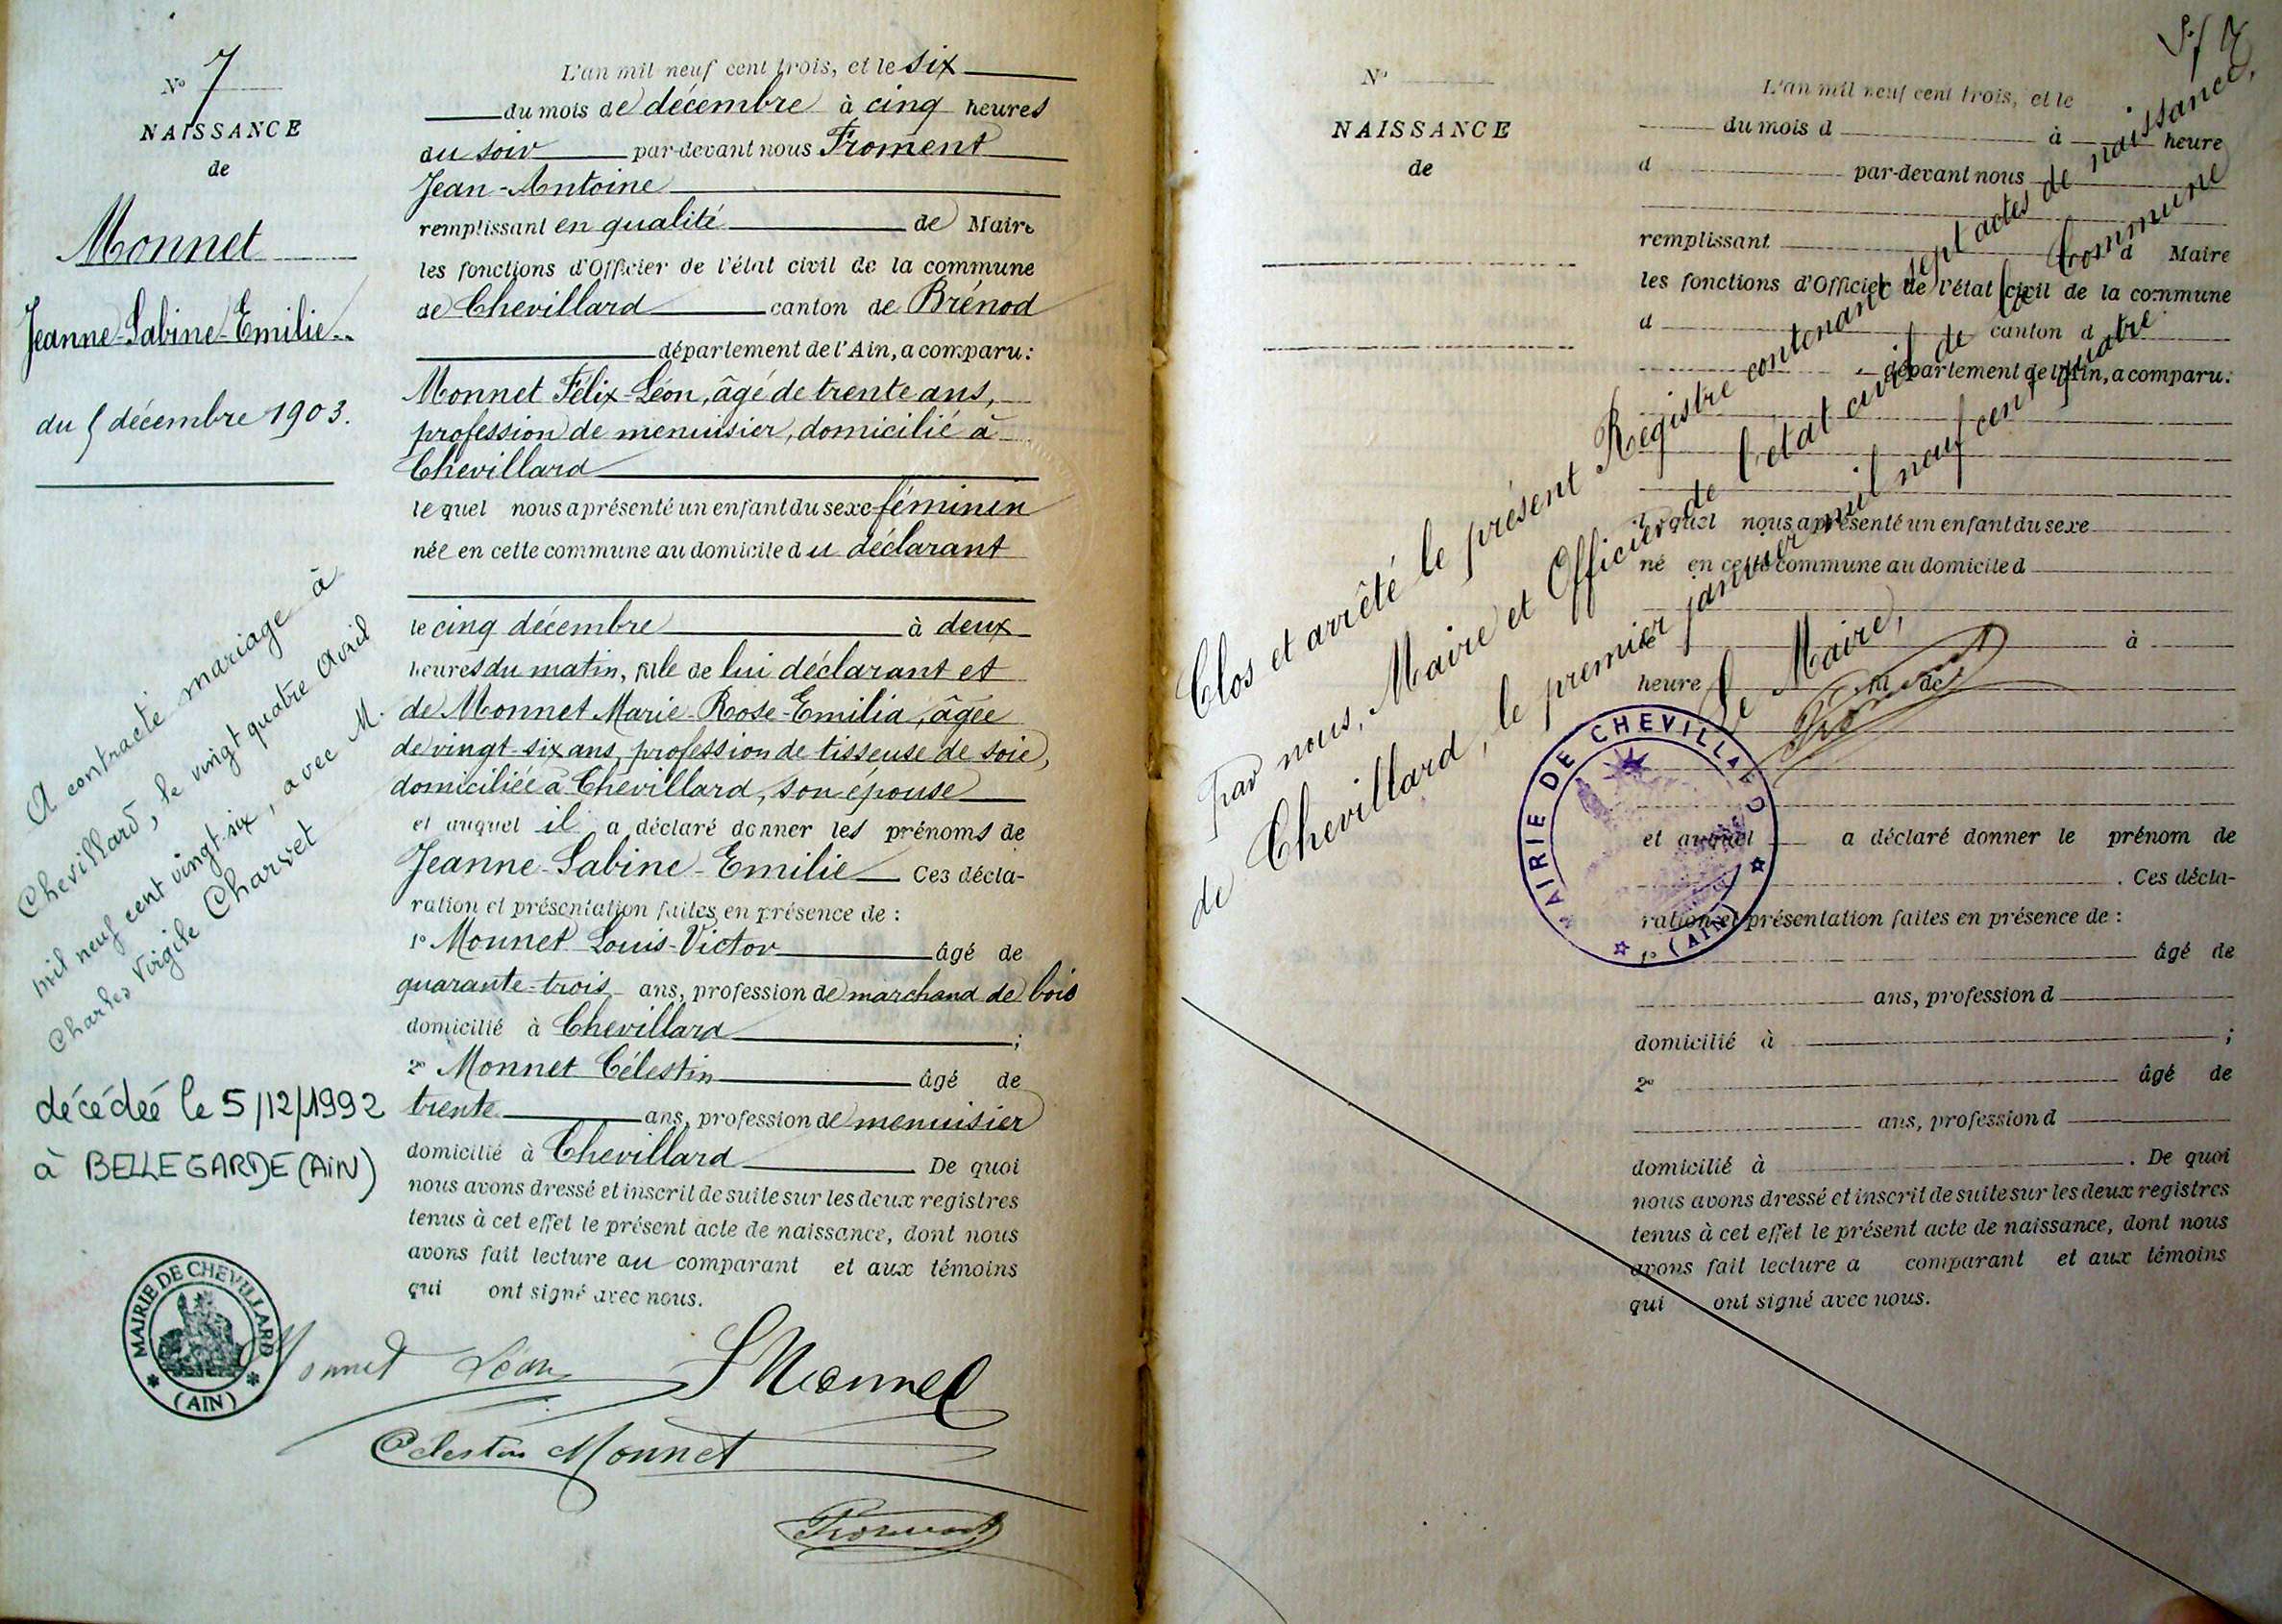 N° 7
NAISSANCE
de
Monnet
Jeanne-Sabine-Emilie
du 5 décembre 1903.
A contracté mariage à
Chevillard, le vingt quatre Avril
mil neuf cent vingt-six, avec M.
Charles Virgile Charvet
décédée le 5/12/1992
à BELLEGARDE (AIN)
MAIRIE DE CHEVILLARD
(AIN)
L'an mil neuf cent trois, et le six
du mois de décembre à cinq heures
du soir par-devant nous Froment
Jean-Antoine
remplissant en qualité de Maire
les fonctions d'Officier de l'état civil de la commune
de Chevillard canton de Brénod
département de l'Ain, a comparu:
Monnet Félix-Léon, âgé de trente ans,
profession de menuisier, domicilié à
Chevillard
lequel nous a présenté un enfant du sexe féminin
née en cette commune au domicile du déclarant
le cinq décembre à deux
heures du matin, fille de lui déclarant et
de Monnet Marie-Rose-Emilia, âgée
de vingt-six ans, profession de tisseuse de soie,
domiciliée à Chevillard, son épouse
et auquel il a déclaré donner les prénoms de
Jeanne-Sabine-Emilie Ces décla-
ration et présentation faites en présence de :
1° Monnet Louis-Victor âgé de
quarante-trois ans, profession de marchand de bois
domicilié à Chevillard ;
2° Monnet Célestin âgé de
trente ans, profession de menuisier
domicilié à Chevillard De quoi
nous avons dressé et inscrit de suite sur les deux registres
tenus à cet effet le présent acte de naissance, dont nous
avons fait lecture au comparant et aux témoins
qui ont signé avec nous.
Monnet Léon
Monnet
Célestin Monnet
Froment
N°
NAISSANCE
de
L'an mil neuf cent trois, et le
du mois d à heure
d par-devant nous
remplissant d Maire
les fonctions d'Officier de l'état civil de la commune
d canton d
département de l'Ain, a comparu:
lequel nous a présenté un enfant du sexe
né en cette commune au domicile d
le à
heure fil de
et auquel a déclaré donner le prénom de
. Ces décla-
ration et présentation faites en présence de :
1° âgé de
ans, profession d
domicilié à ;
2° âgé de
ans, profession d
domicilié à . De quoi
nous avons dressé et inscrit de suite sur les deux registres
tenus à cet effet le présent acte de naissance, dont nous
avons fait lecture a comparant et aux témoins
qui ont signé avec nous.
Clos et arrêté le présent Registre contenant sept actes de naissance,
par nous, Maire et Officier de l'état civil de la Commune
de Chevillard, le premier janvier mil neuf cent quatre.
Le Maire,
Froment
MAIRIE DE CHEVILLARD
(AIN)